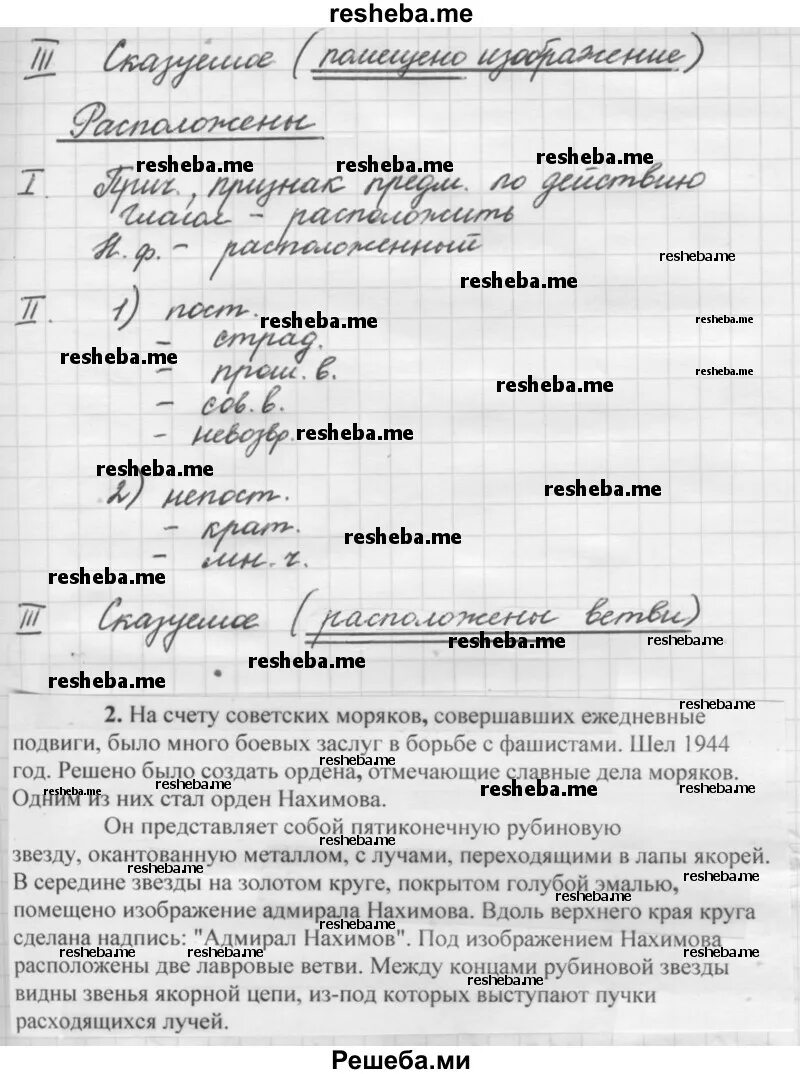 resheba.me
III Сказуемое (помещено изображение)
Расположены
resheba.me resheba.me resheba.me
I. Прич., признак предм. по действию
глагол – расположить
Н.ф. – расположенный
resheba.me
resheba.me
II. 1) пост.
resheba.me resheba.me
– страд.
resheba.me
– прош.в.
resheba.me
resheba.me
– сов.в.
– невозвр. resheba.me
resheba.me
2) непост.
resheba.me
– крат.
resheba.me
– мн.ч.
resheba.me
III Сказуемое (расположены ветви)
resheba.me resheba.me
resheba.me
resheba.me
resheba.me
2. На счету советских моряков, совершавших ежедневные
подвиги, было много боевых заслуг в борьбе с фашистами. Шел 1944
resheba.me
год. Решено было создать ордена, отмечающие славные дела моряков.
resheba.me resheba.me resheba.me
Одним из них стал орден Нахимова.
Он представляет собой пятиконечную рубиновую
resheba.me
звезду, окантованную металлом, с лучами, переходящими в лапы якорей.
resheba.me
В середине звезды на золотом круге, покрытом голубой эмалью,
resheba.me
помещено изображение адмирала Нахимова. Вдоль верхнего края круга
resheba.me
сделана надпись: "Адмирал Нахимов". Под изображением Нахимова
resheba.me resheba.me resheba.me
расположены две лавровые ветви. Между концами рубиновой звезды
resheba.me
видны звенья якорной цепи, из-под которых выступают пучки
расходящихся лучей.
Решеба.ми